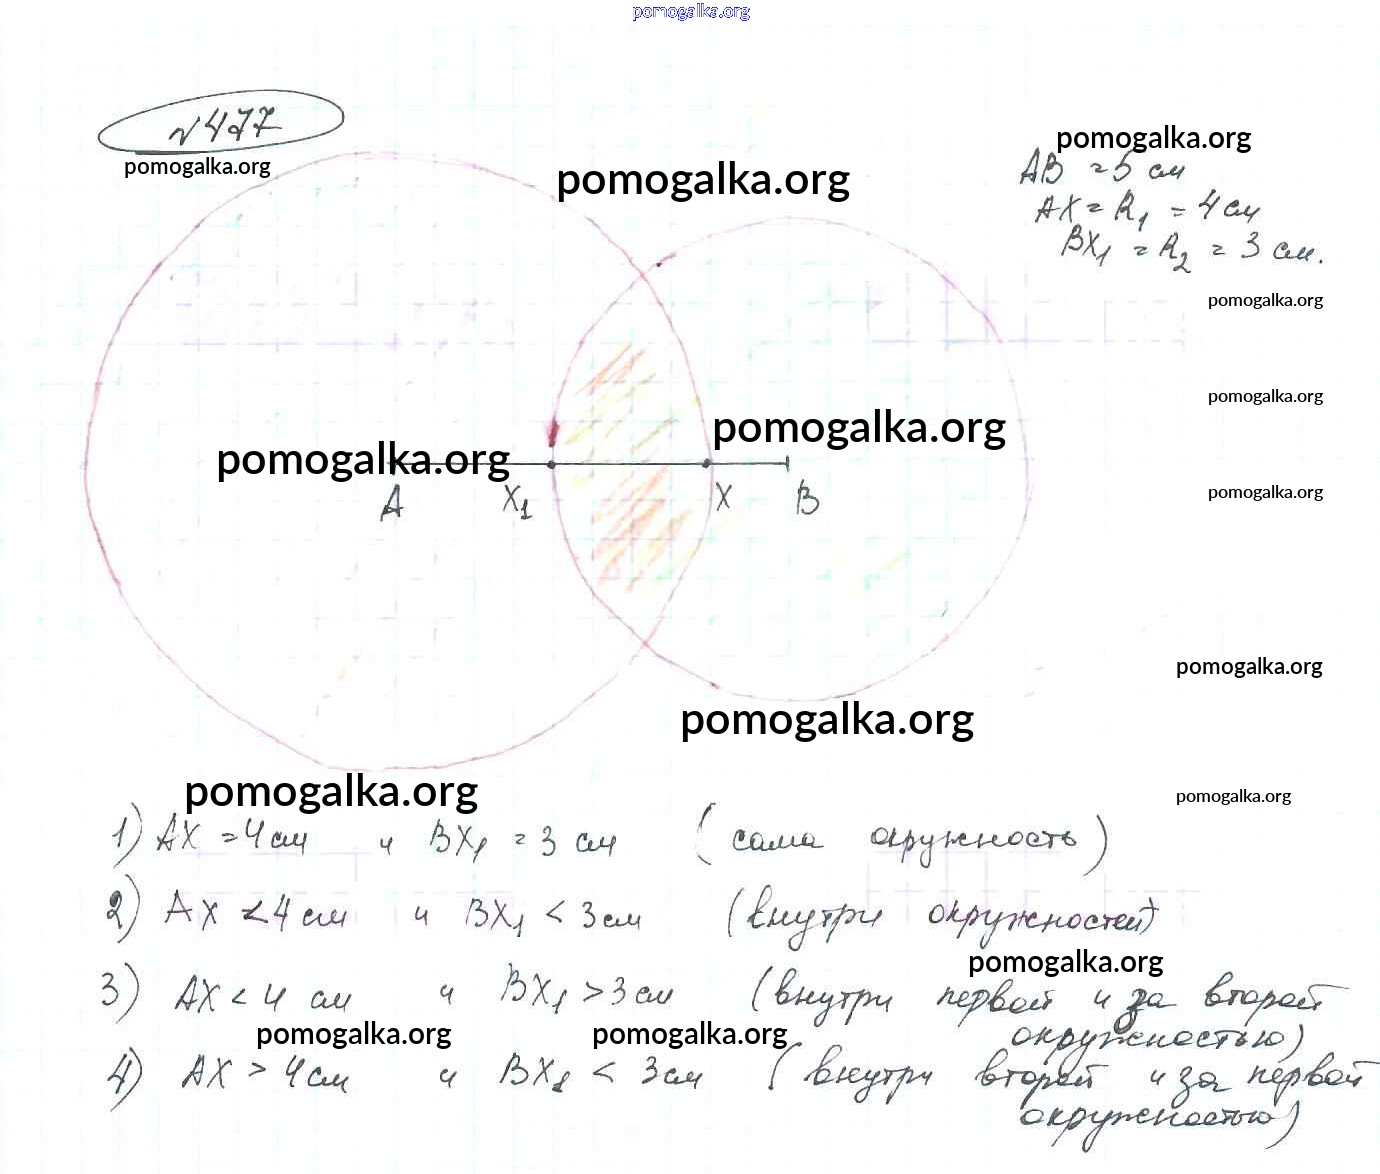 pomogalka.org
№ 477
pomogalka.org
pomogalka.org
pomogalka.org
AB = 5 см
AX = R₁ = 4 см
BX₁ = R₂ = 3 см.
pomogalka.org
pomogalka.org
pomogalka.org
pomogalka.org
A X₁ X B
pomogalka.org
pomogalka.org
pomogalka.org
pomogalka.org
pomogalka.org
1) AX = 4 см и BX₁ = 3 см (сама окружность)
2) AX < 4 см и BX₁ < 3 см (внутри окружностей)
pomogalka.org
3) AX < 4 см и BX₁ > 3 см (внутри первой и за второй
окружностью)
pomogalka.org pomogalka.org
4) AX > 4 см и BX₁ < 3 см (внутри второй и за первой
окружностью)